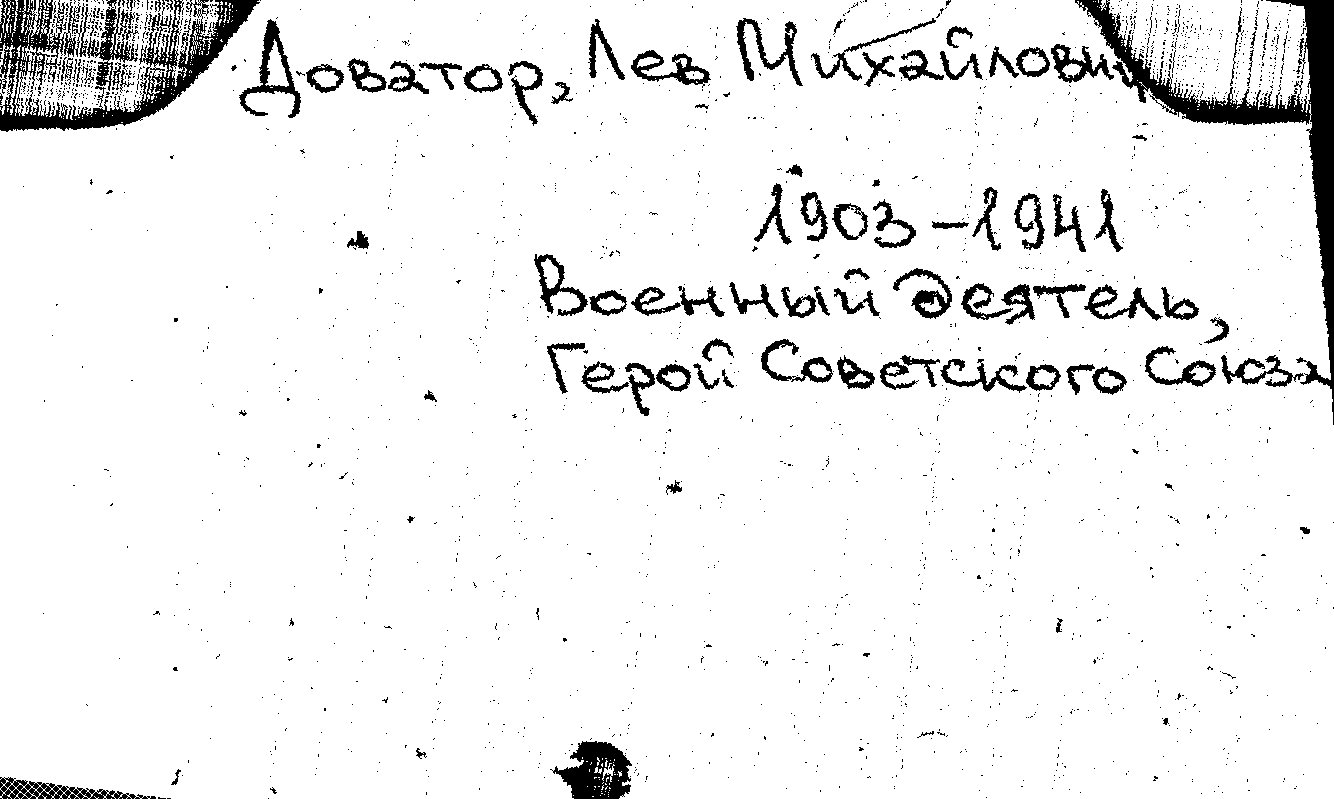 Доватор, Лев Михайлович
1903-1941
Военный деятель,
Герой Советского Союза